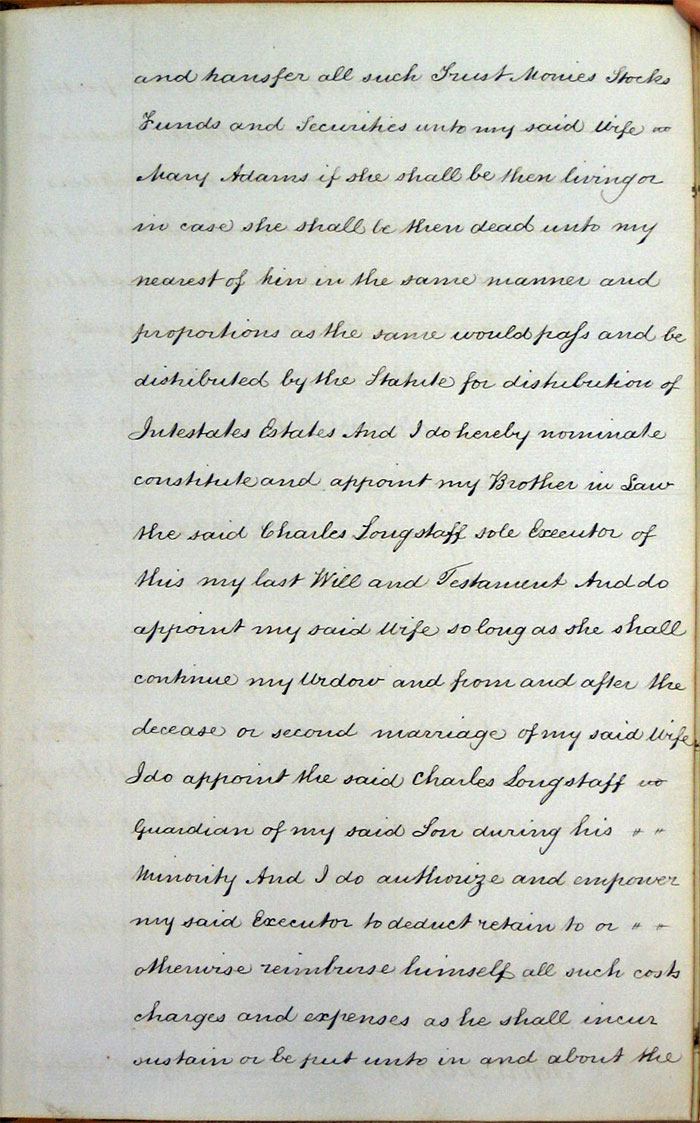 and transfer all such Trust Monies Stocks
Funds and Securities unto my said Wife
Mary Adams if she shall be then living or
in case she shall be then dead unto my
nearest of kin in the same manner and
proportions as the same would pass and be
distributed by the Statute for distribution of
Intestates Estates And I do hereby nominate
constitute and appoint my Brother in Law
the said Charles Longstaff sole Executor of
this my last Will and Testament And do
appoint my said Wife so long as she shall
continue my Widow and from and after the
decease or second marriage of my said Wife
I do appoint the said Charles Longstaff
Guardian of my said Son during his " "
Minority And I do authorize and empower
my said Executor to deduct retain to or " "
otherwise reimburse himself all such costs
charges and expenses as he shall incur
sustain or be put unto in and about the